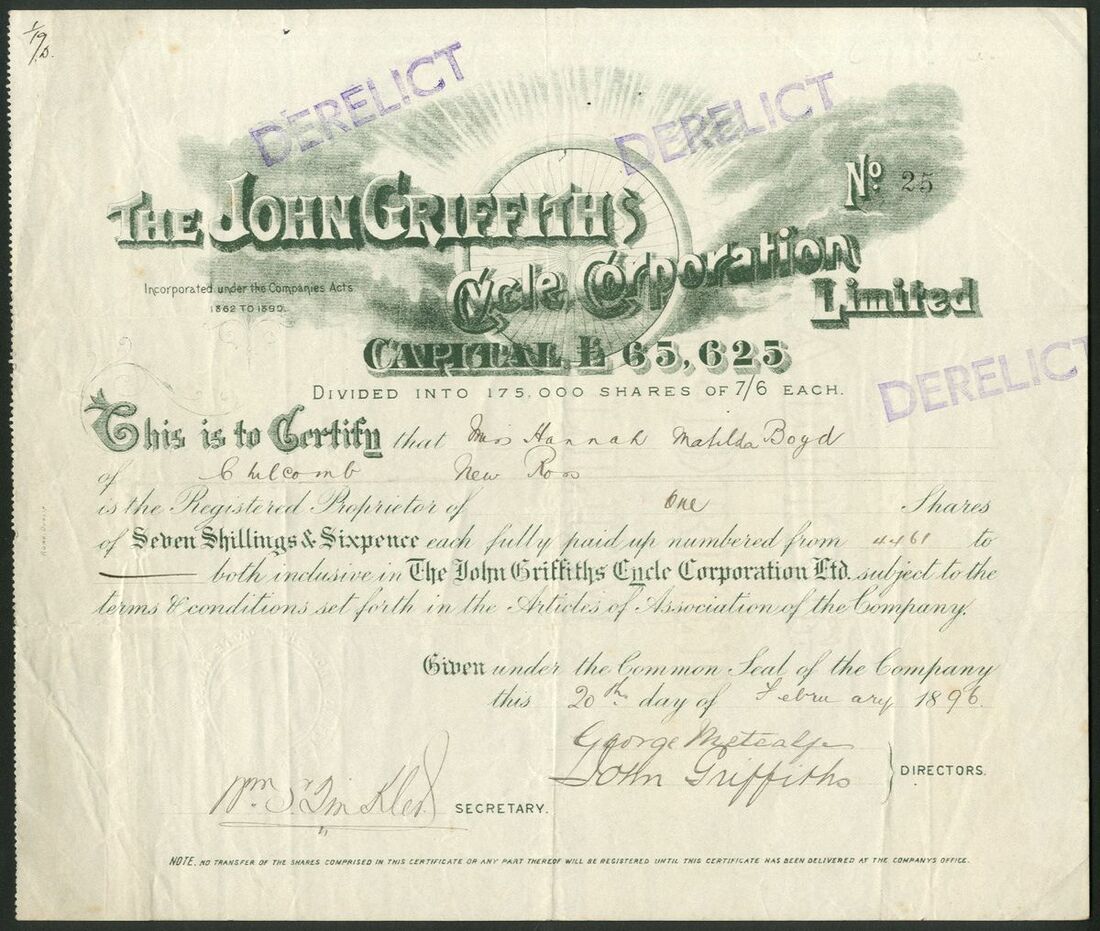 1/9
D.
DERELICT
DERELICT
No. 25
THE JOHN GRIFFITHS
Cycle Corporation
Limited
Incorporated under the Companies Acts
1862 TO 1890.
CAPITAL £65,625
DIVIDED INTO 175,000 SHARES OF 7/6 EACH.
DERELICT
This is to Certify that Hannah Matilda Boyd
of Chilcomb New Ross
is the Registered Proprietor of One Shares
of Seven Shillings & Sixpence each fully paid up numbered from 4461 to
both inclusive in The John Griffiths Cycle Corporation Ltd. subject to the
terms & conditions set forth in the Articles of Association of the Company.
Given under the Common Seal of the Company
this 20th day of February 1896.
George Metcalfe
John Griffiths
DIRECTORS.
SECRETARY.
NOTE. NO TRANSFER OF THE SHARES COMPRISED IN THIS CERTIFICATE OR ANY PART THEREOF WILL BE REGISTERED UNTIL THIS CERTIFICATE HAS BEEN DELIVERED AT THE COMPANYS OFFICE.